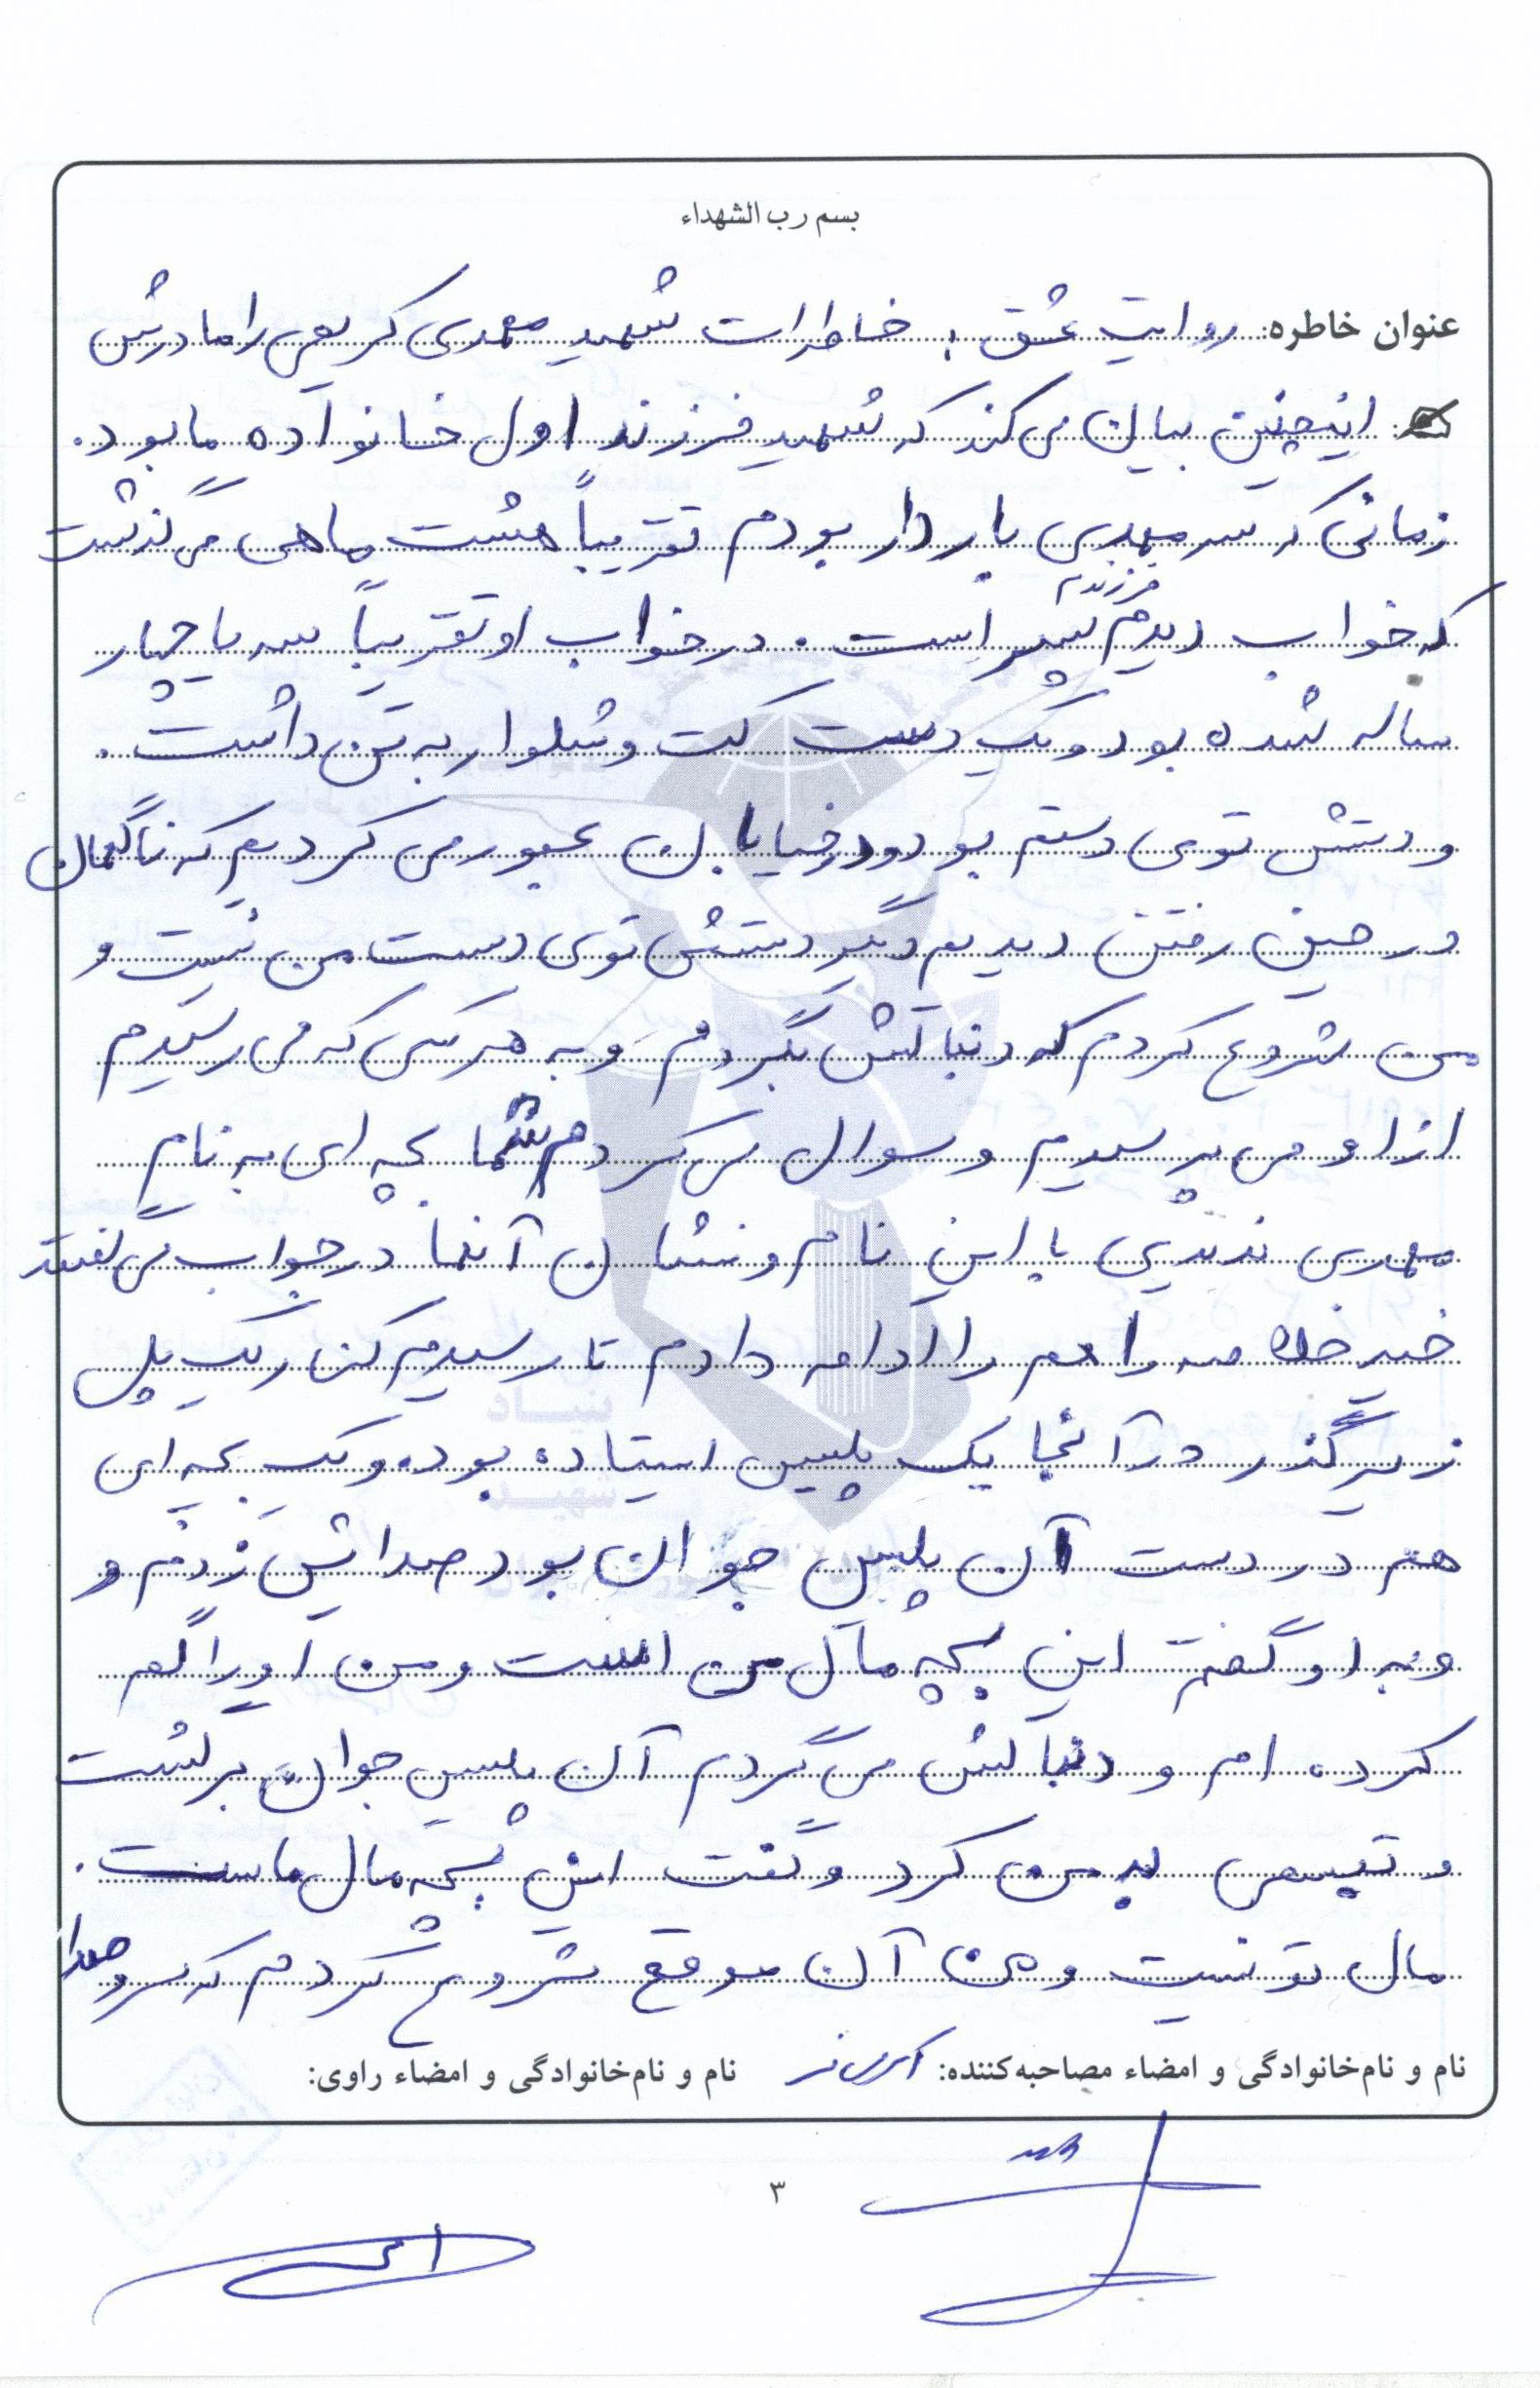 بسم رب الشهداء
عنوان خاطره: روایت عشق: خاطرات شهید مهدی کریمی را مادرش
اینچنین بیان می کند که شهید فرزند اول خانواده ما بود.
زمانی که سر مهدی باردار بودم تقریباً هشت ماهی می گذشت
که خواب دیدم فرزندم پسر است. در خواب او تقریباً سه یا چهار
ساله شده بود و یک دست کت و شلوار به تن داشت.
و دستش توی دستم بود و در خیابان عبور می کردیم که ناگهان
در حین رفتن دیدم دیگر دستش توی دست من نیست و
من شروع کردم که دنبالش بگردم و به هر کسی که می رسیدم
از او می پرسیدم و سوال می کردم شما بچه ای به نام
مهدی ندیدی با این نام و نشان آنها در جواب می گفتند
خیر خلاصه راهم را ادامه دادم تا رسیدم کنار یک پل
زیرگذر در آنجا یک پلیس ایستاده بود و یک بچه ای
هم در دست آن پلیس جوان بود صدایش زدم و
و به او گفتم این بچه مال من است و من او را گم
کرده ام و دنبالش می گردم آن پلیس جوان برگشت
و تبسمی به من کرد و گفت این بچه مال ماست.
مال تو نیست و من آن موقع شروع کردم که سر و صدا
نام و نام‌خانوادگی و امضاء مصاحبه‌کننده: نام و نام‌خانوادگی و امضاء راوی:
۳
بنیاد
شهید